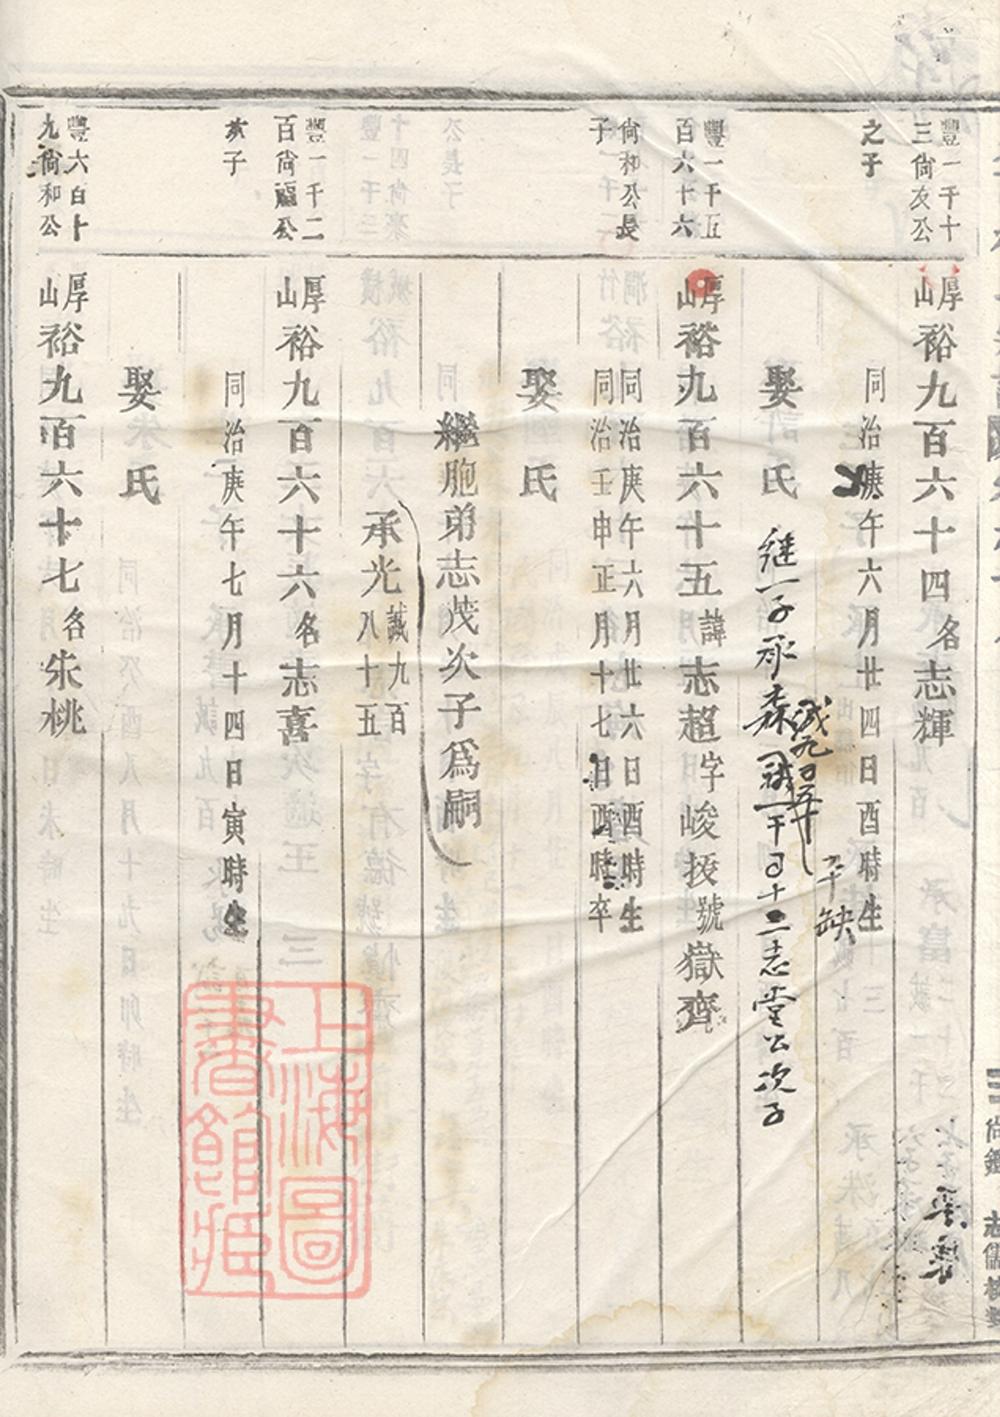 豐一千十
三尙友公
之子
厚山裕九百六十四名志輝
同治庚午六月廿四日酉時生
卒缺
娶氏
継一子承森
誠一千百十二志堂公次子
豐一千五
百六十六
尙和公長
子
厚山裕九百六十五諱志超字峻掞號嶽齊
同治庚午六月廿六日酉時生
同治壬申正月十七日酉時卒
娶氏
繼胞弟志茂次子爲嗣
承光誠九百八十五
豐一千二
百尙龎公
亥子
厚山裕九百六十六名志喜
同治庚午七月十四日寅時生
娶氏
豐六百十
九尙和公
厚山裕九百六十七名朱桃
上海圖書館藏